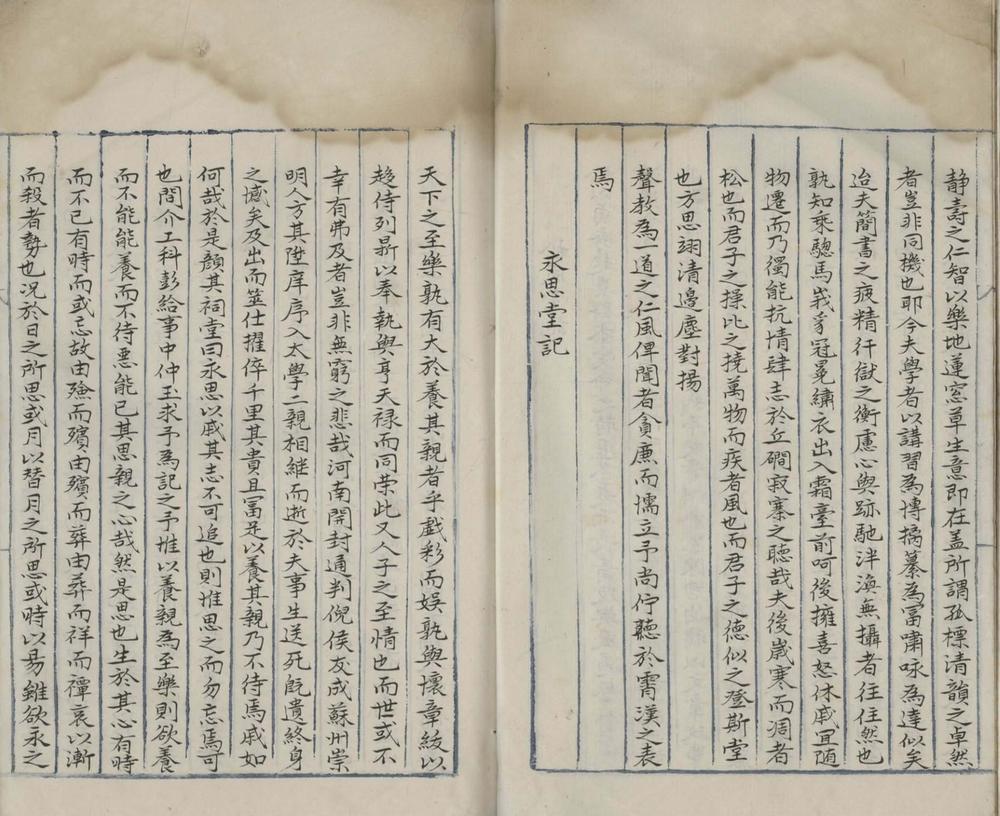 静壽之仁智以樂地蓮窓草生意即在盖所謂孤標清韻之卓然
者豈非同機也耶今夫學者以講習為博摛纂為富嘯咏為達似矣
迨夫簡書之疲精犴獄之衡慮心與跡馳泮渙無攝者往往然也
孰知乗驄馬峩豸冠冕繡衣出入霜臺前呵後擁喜怒休戚冝随
物遷而乃獨能抗情肆志於丘磵寂寥之聴哉夫後嵗寒而凋者
松也而君子之操比之撓萬物而疾者風也而君子之德似之登斯堂
也方思翊清邉塵對揚
聲教為一道之仁風俾聞者貪廉而懦立予尚佇聽於霄漢之表
焉
永思堂記
天下之至樂孰有大於養其親者乎戯彩而娯孰與懐章紱以
趍侍列鼎以奉孰與亨天禄而同荣此又人子之至情也而世或不
幸有弗及者豈非無窮之悲哉河南開封通判倪侯友成蘇州崇
明人方其陞庠序入太學二親相継而逝於夫事生送死旣遺終身
之憾矣及出而筮仕擢倅千里其貴且冨足以養其親乃不待焉戚如
何哉於是顔其祠堂曰永思以戚其志不可追也則惟思之而勿忘焉可
也間介工科彭給事中仲玉求予為記之予惟以養親為至樂則欲養
而不能能養而不待悪能已其思親之心哉然是思也生於其心有時
而不已有時而或忘故由殮而殯由殯而葬由葬而祥而禫哀以漸
而殺者勢也况於日之所思或月以替月之所思或時以昜雖欲永之